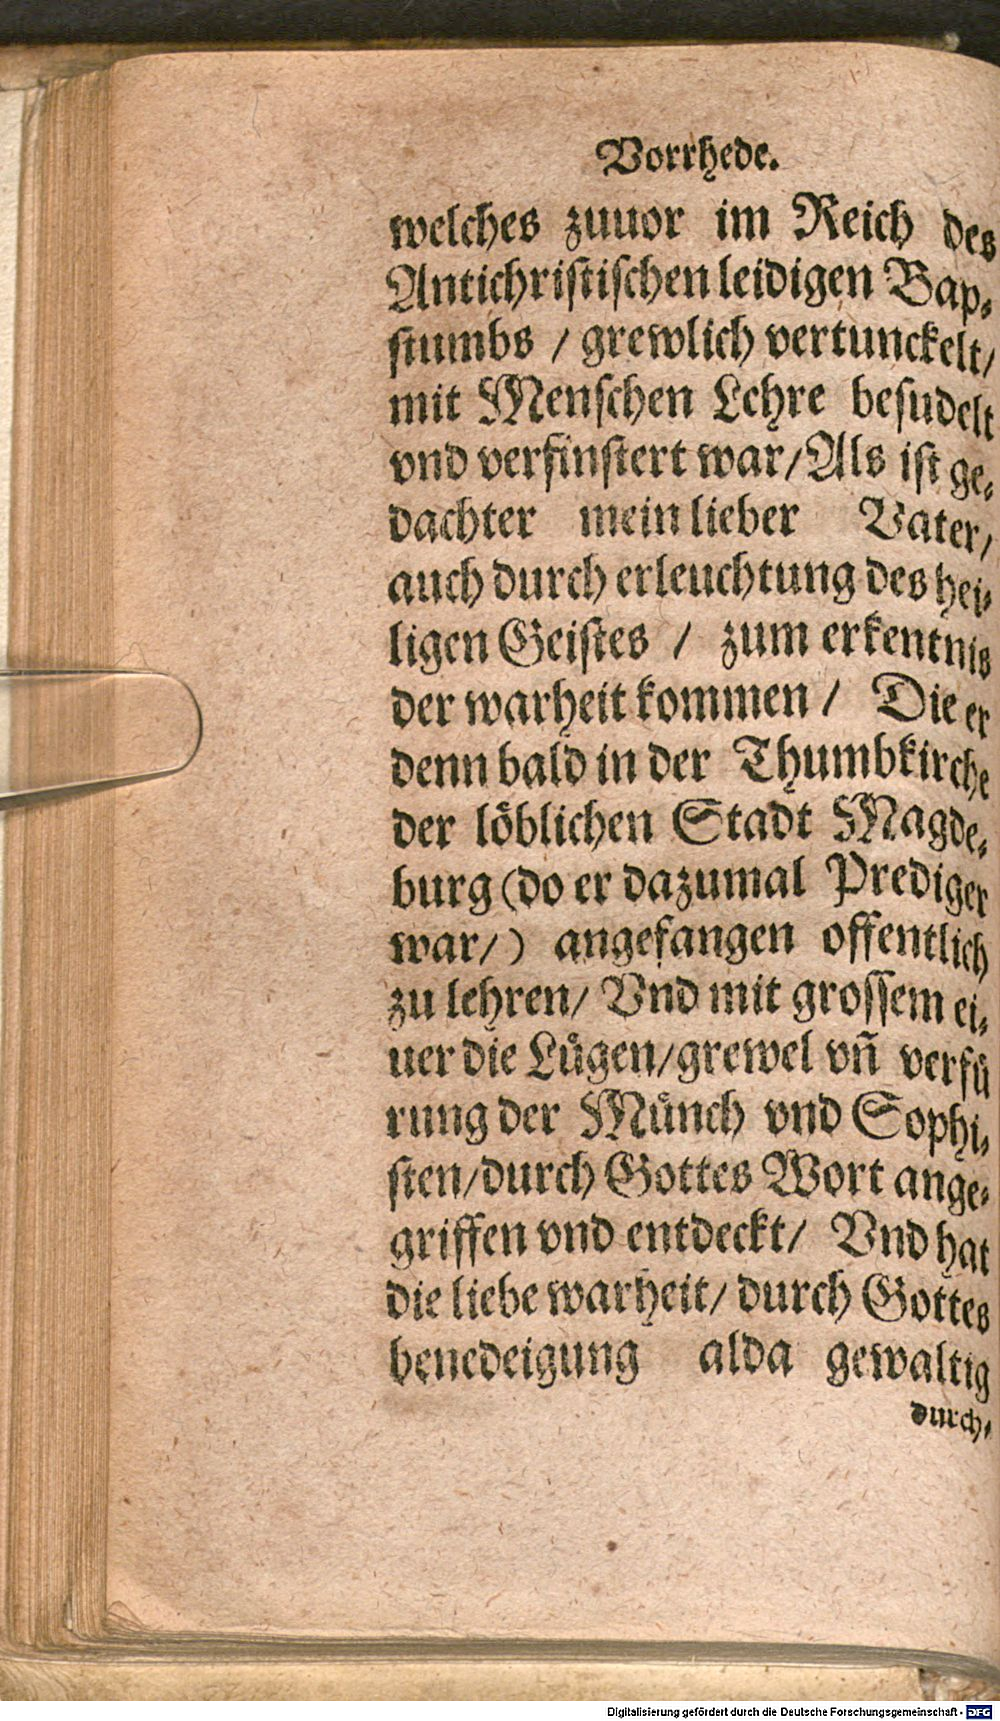 Vorrhede.
welches zuuor im Reich des
Antichristischen leidigen Bap-
stumbs / grewlich vertunckelt/
mit Menschen Lehre besudelt
vnd verfinstert war/Als ist ge-
dachter mein lieber Vater/
auch durch erleuchtung des hei-
ligen Geistes / zum erkentnis
der warheit kommen / Die er
denn bald in der Thumbkirche
der löblichen Stadt Magde-
burg (do er dazumal Prediger
war/) angefangen offentlich
zu lehren/ Vnd mit grossem ei-
uer die Lügen/grewel vñ verfü
rung der Münch vnd Sophi-
sten/durch Gottes Wort ange-
griffen vnd entdeckt/ Vnd hat
die liebe warheit/ durch Gottes
benedeigung alda gewaltig
durch-
Digitalisierung gefördert durch die Deutsche Forschungsgemeinschaft - DFG